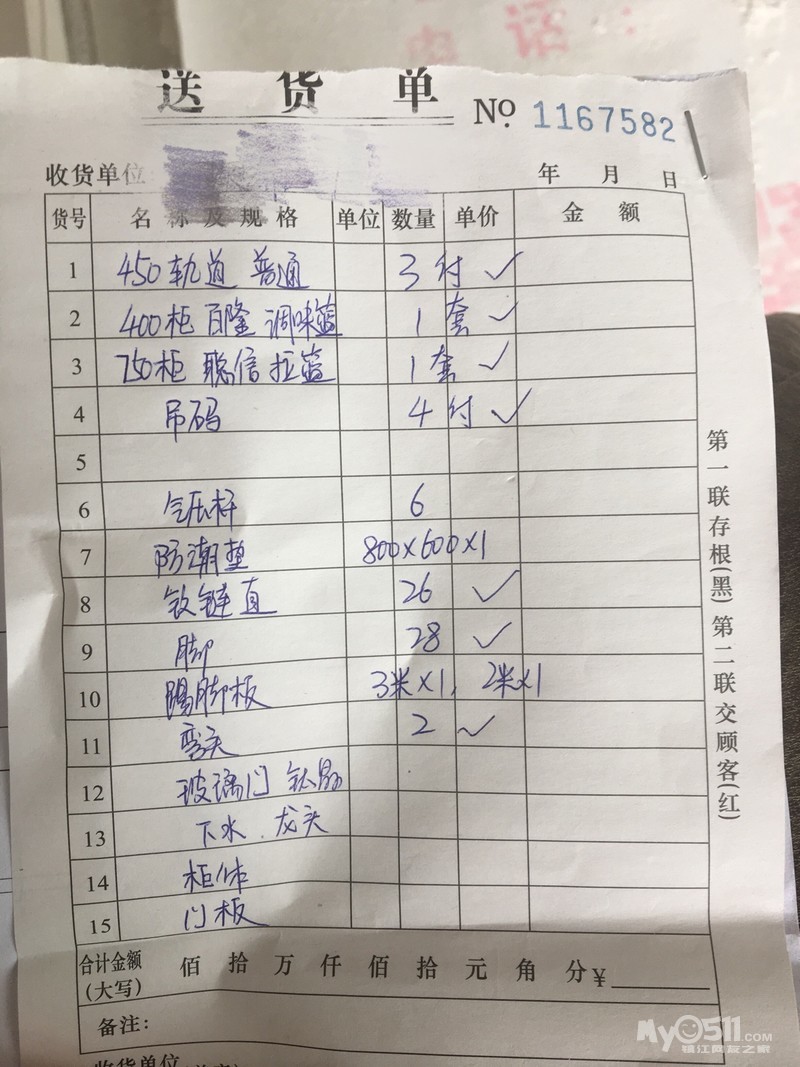 电话:
送货单 No 1167582
收货单位
年 月 日
货号 名称及规格 单位 数量 单价 金额
1 450轨道 普通 3付 ✓
2 400柜 百隆 调味篮 1套 ✓
3 750柜 聪信 拉篮 1套 ✓
4 吊码 4付 ✓
5
6 气压杆 6
7 防潮垫 800×600×1
8 铰链直 26 ✓
9 脚 28 ✓
10 踢脚板 3米×1, 2米×1
11 弯头 2 ✓
12 玻璃门
13 下水.龙头
14 柜体
15 门板
合计金额(大写) 佰 拾 万 仟 佰 拾 元 角 分 ¥
备注:
收货单位
第一联存根(黑) 第二联交顾客(红)
My0511.COM
镇江网友之家